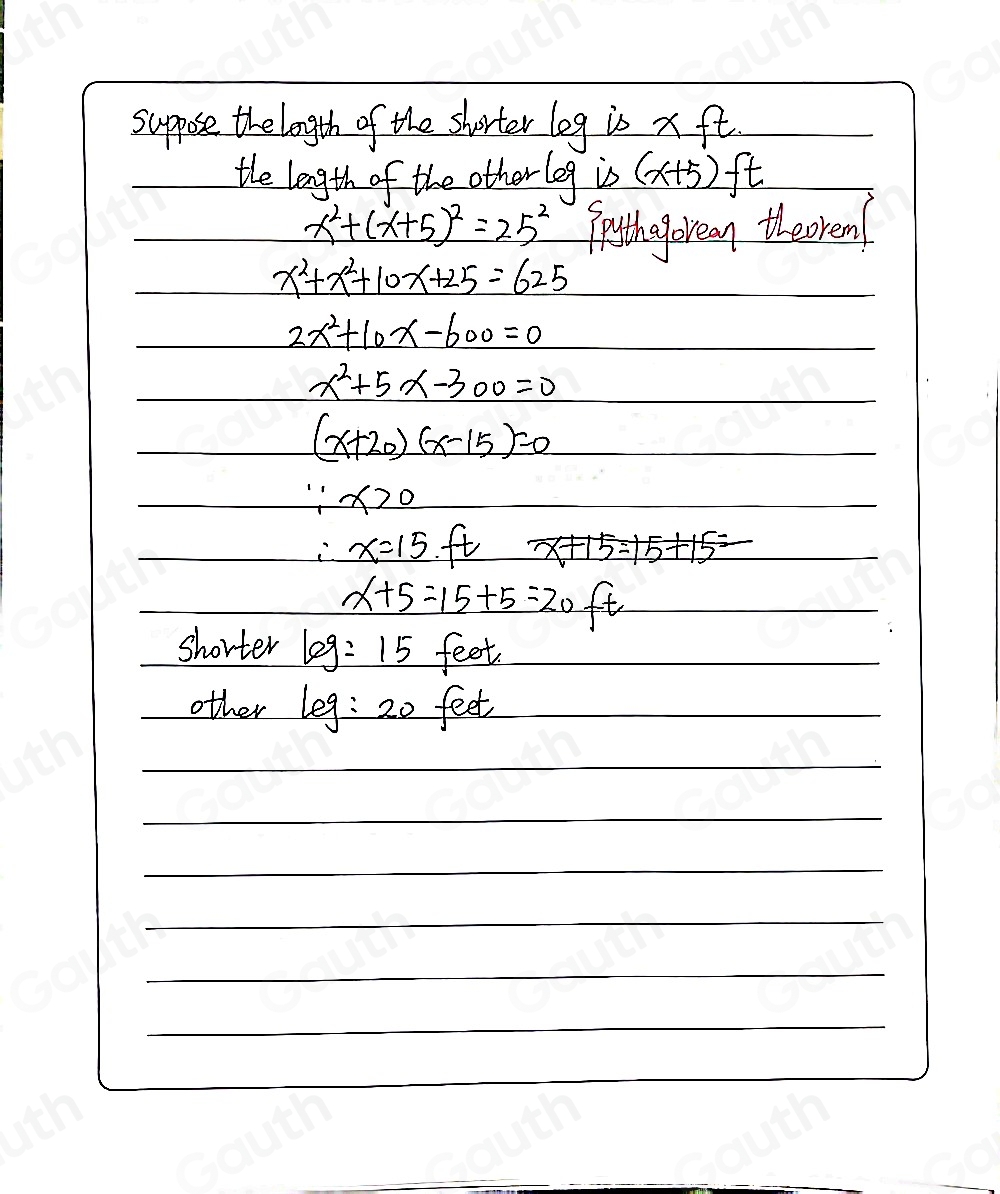 suppose the length of the shorter leg is x ft.
the length of the other leg is (x+5) ft
x²+(x+5)²=25² {pythagorean theorem}
x²+x²+10x+25=625
2x²+10x-600=0
x²+5x-300=0
(x+20)(x-15)=0
∵ x>0
∴ x=15.ft x+15=15+15=
x+5=15+5=20 ft
shorter leg: 15 feet.
other leg: 20 feet